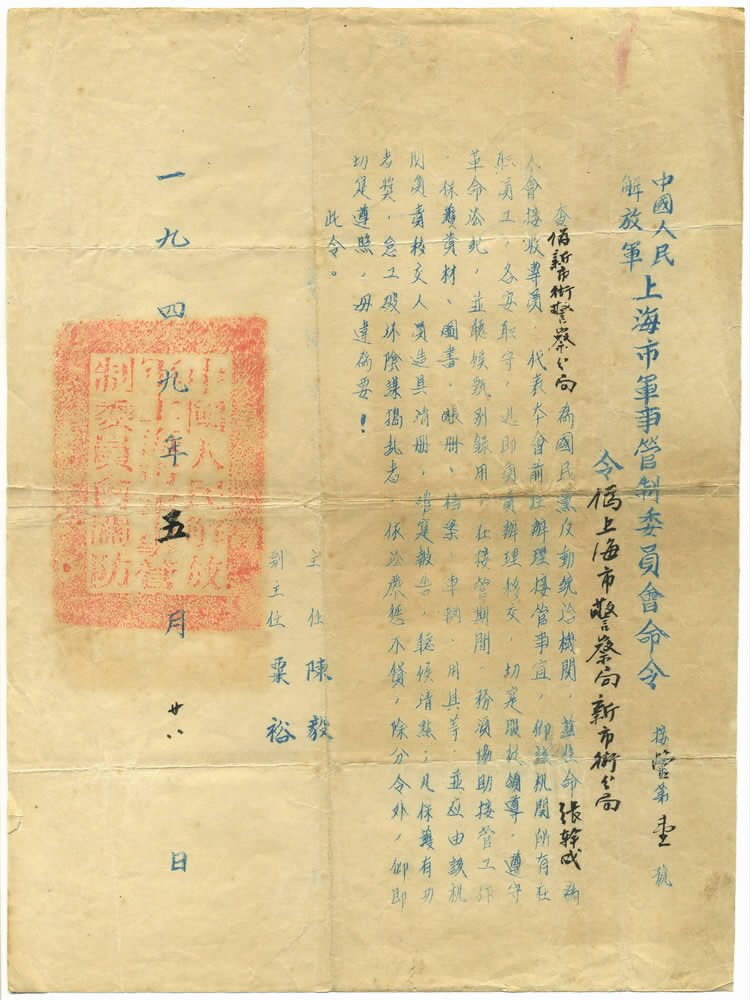 中國人民
解放軍
上海市軍事管制委員會命令
接管第壹號
令 偽上海市警察局新市街分局
查偽新市街警察分局為國民黨反動統治機關，茲任命張幹成為
本會接收專員，代表本會前往辦理接管事宜，仰該機關所有在
職員工，各安職守，立即負責辦理移交，切實服從領導，遵守
革命法紀，並聽候甄別錄用。在接管期間，務須協助接管工作
，保護資材、圖書、賬冊、檔案、車輛、用具等，並應由該機
關負責移交人員造具清冊，確實報告，聽候清點；凡保護有功
者獎，怠工破坏陰謀搗亂者，依法嚴懲不貸，除分令外，仰即
切實遵照，毋違為要！
此令。
主任 陳毅
副主任 粟裕
一九四九年五月廿八日
中國人民解放
軍上海市軍事管
制委員會關防